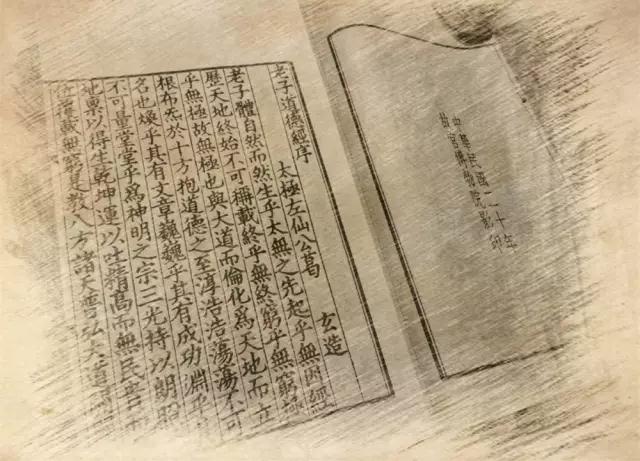 中華民國二十年
故宮博物院影印
老子道德經序
太極左仙公葛 玄造
老子體自然而然生乎太無之先起乎無因經
歷天地終始不可稱載終乎無終窮乎無窮極
乎無極故無極也與大道而倫化為天地而立
根布炁於十方抱道德之至淳浩浩蕩蕩不可
名也煥乎其有文章巍巍乎其有成功淵乎
不可量堂堂乎為神明之宗三光持以朗照
地稟以得生乾坤運以吐精高而無民貴
位覆載無窮是教八方諸天普弘大道